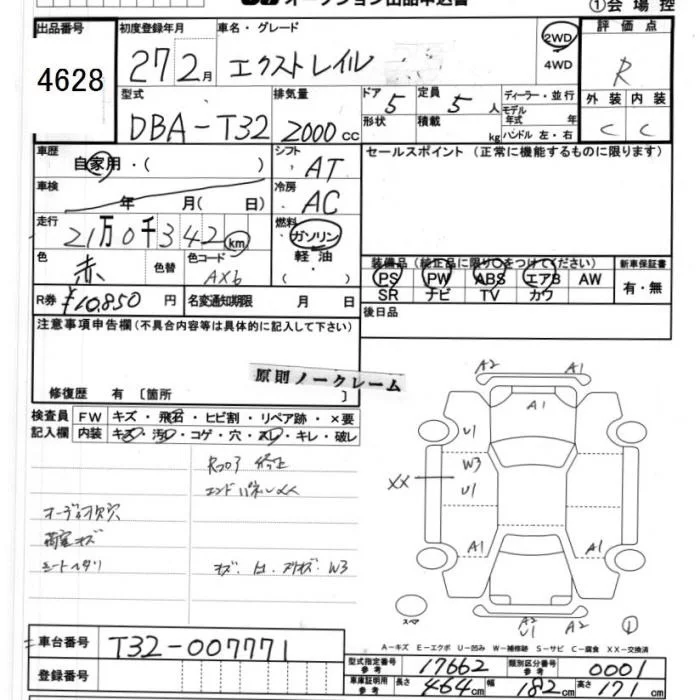 オークション出品申込書
①会場控
出品番号
4628
初度登録年月
27 2月
車名・グレード
エクストレイル
2WD
4WD
評価点
R
外装 内装
C C
型式
DBA-T32
排気量
2000cc
ドア 5
形状
定員 5人
積載 kg
ディーラー・並行
モデル年式 年式
ハンドル 左・右
車歴
自家用・( )
シフト
AT
セールスポイント(正常に機能するものに限ります)
車検
年 月( 日)
冷房
AC
走行
21万0千342km
燃料
ガソリン
軽油
( )
色
赤
色替
色コード
AX6
装備品(純正品に限り○をつけてください)
PS PW ABS エアB AW
SR ナビ TV カワ
新車保証書
有・無
R券 ¥10,850円
名変通知期限 月 日
後日品
注意事項申告欄(不具合内容等は具体的に記入して下さい)
原則ノークレーム
修復歴 有〔箇所 〕
検査員記入欄
FW キズ・飛石・ヒビ割・リペア跡・×要
内装 キズ・汚れ・コゲ・穴・スレ・キレ・破レ
Rフロア 修正
エンドパネルXX
オーディオ欠穴
荷室キズ
シートヘタリ
W3
A2 A1
A1
U1
W3
XX
U1
A1 A1
スペア
A2
U1
A2
①
A-キズ E-エクボ U-凹み W-補修跡 S-サビ C-腐食 XX-交換済
車台番号
T32-007771
登録番号
型式指定番号 17662
類別区分番号 0001
車庫証明用参考 長さ 464cm 幅 182cm 高さ 171cm